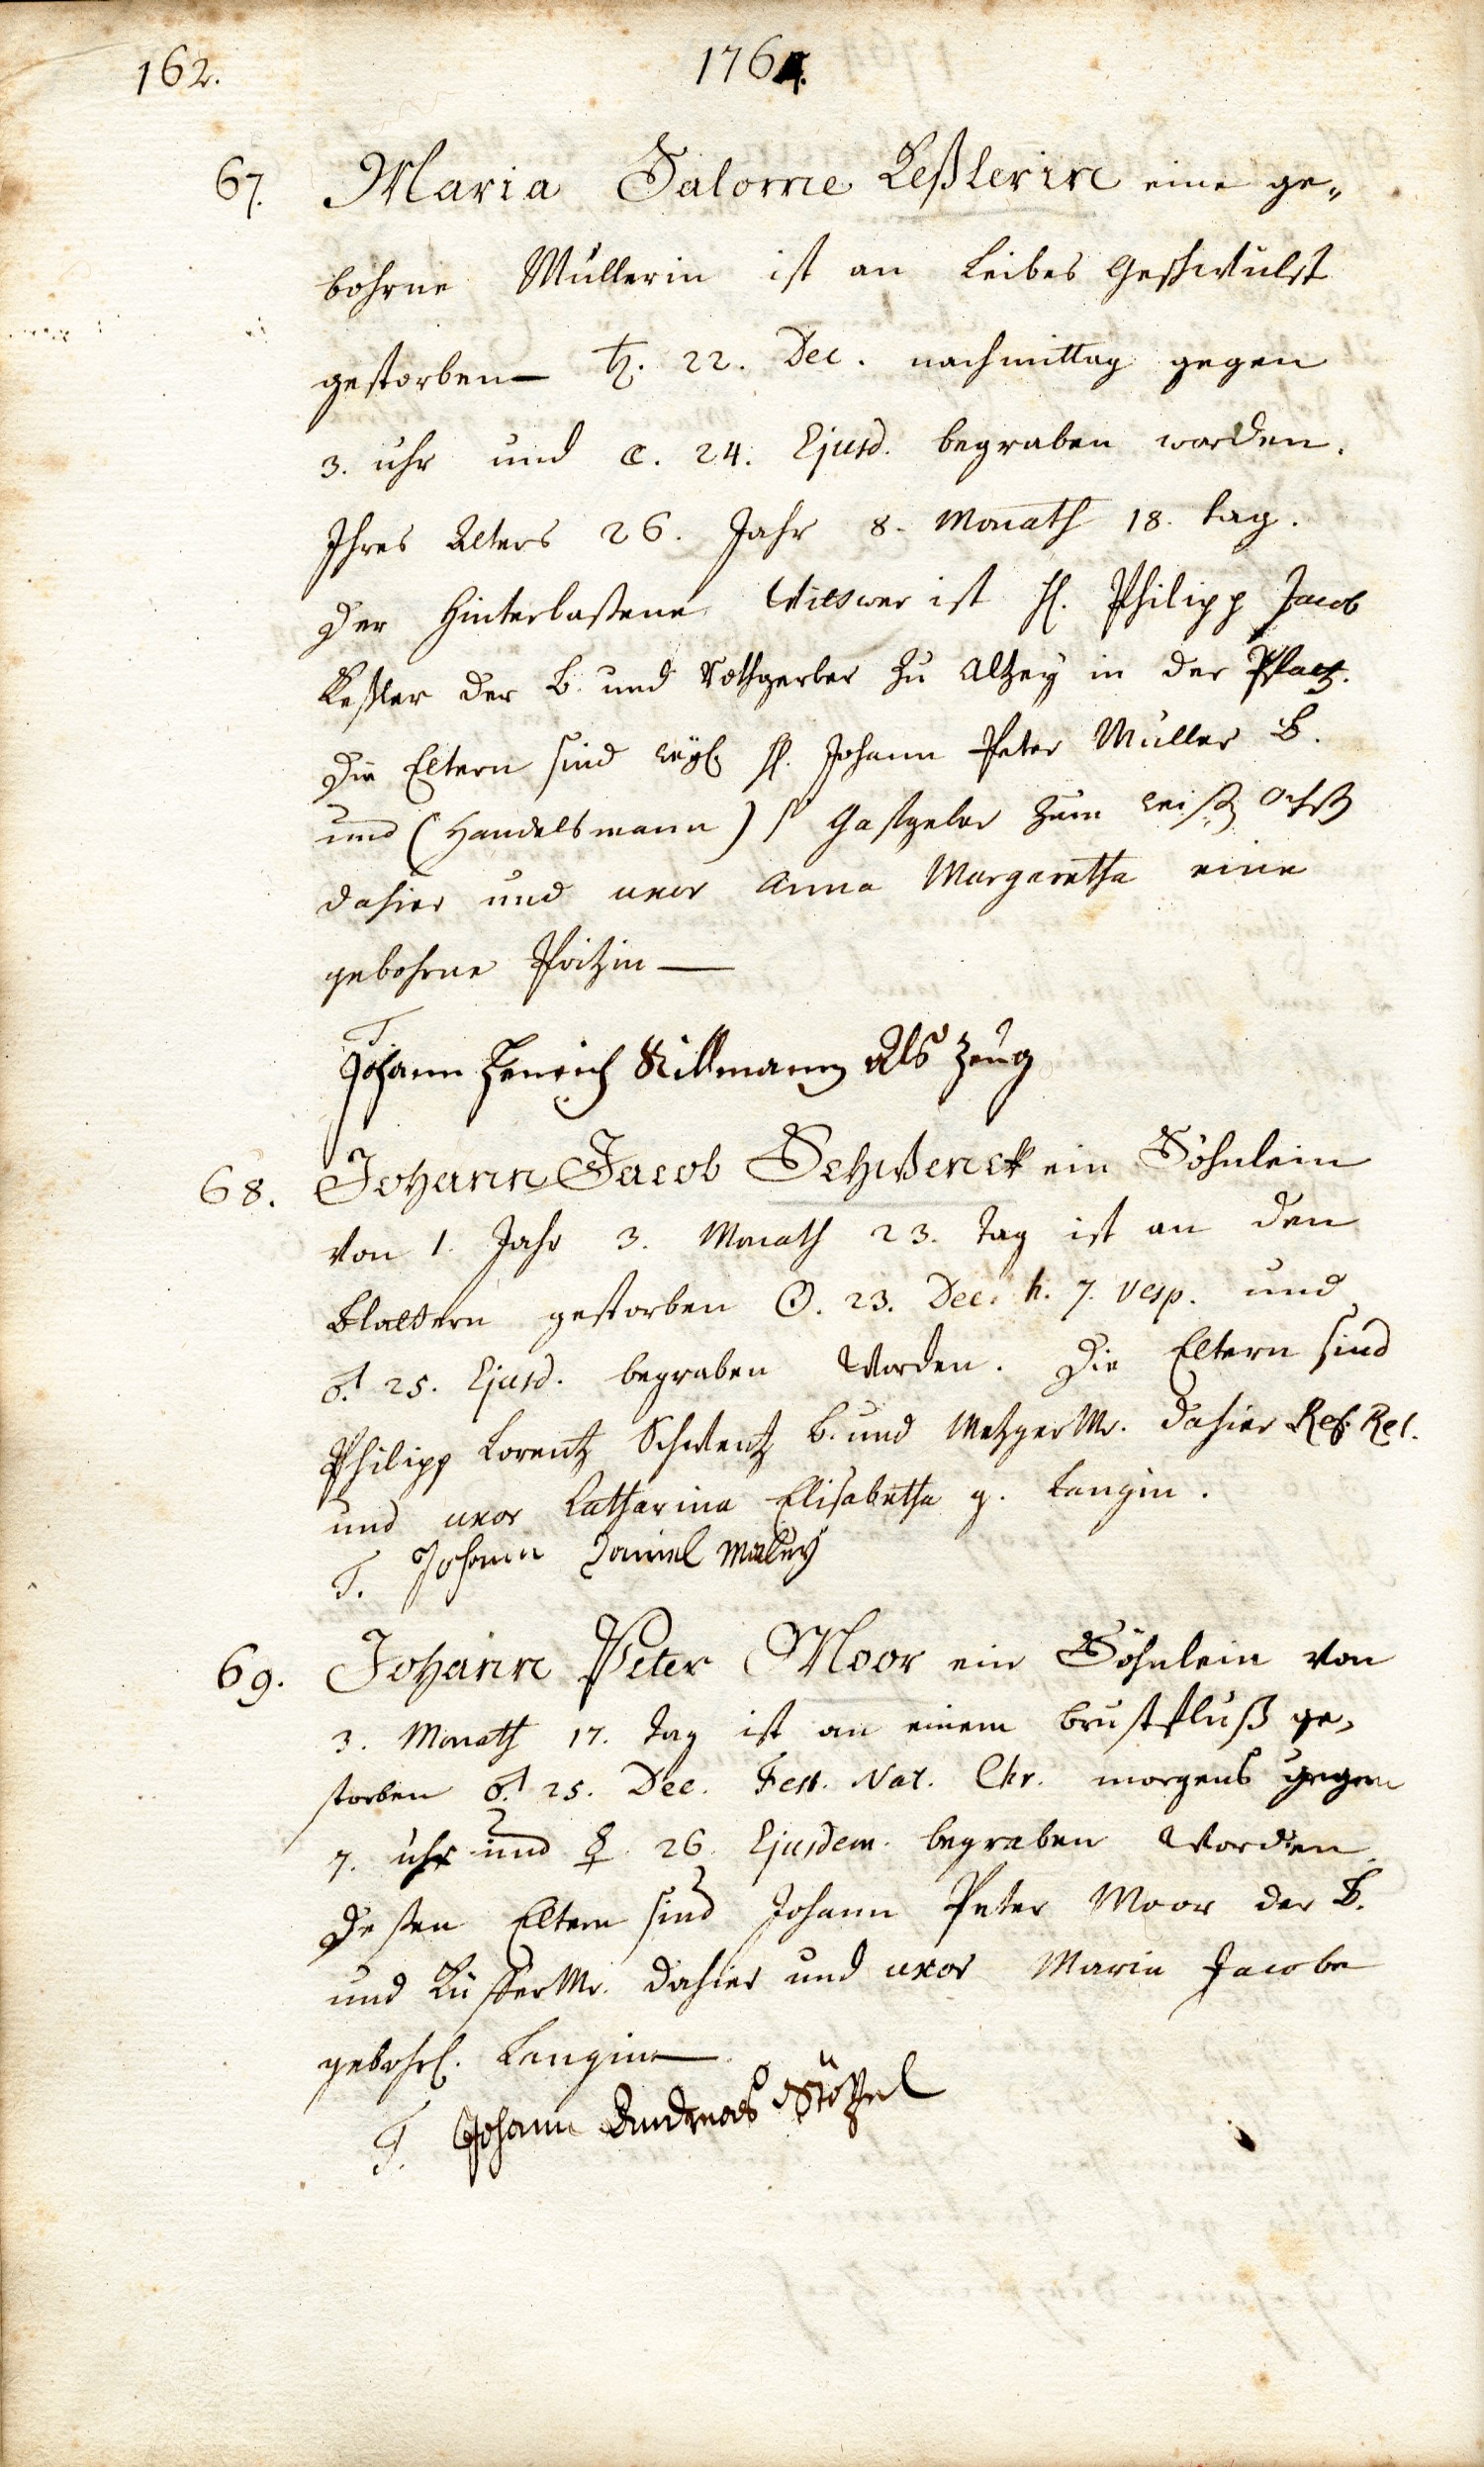 162. 1764.
67. Maria Salome Keßlerin eine ge„
bohrne Müllerin ist an Leibes Geschwulst
gestorben ♄. 22. Dec. nachmittag gegen
3. uhr und ☾. 24. Ejusd. begraben worden.
Ihres Alters 26. Jahr 8. Monath 18. tag.
Der Hinterlaßene Wittwer ist H. Philipp Jacob
Keßler der B. und Rothgerber zu Altzey in der Pfaltz.
Die Eltern sind weyl. H. Johann Peter Müller B.
und (Handelsmann) Gastgeber zum
dahier und uxor Anna Margaretha eine
gebohrne
T
Johann Henrich als Zeug
68. Johann Jacob Schwenck ein Söhnlein
von 1. Jahr 3. Monath 23. Tag ist an den
Blattern gestorben ☉. 23. Dec. h. 7. Vesp. und
♂. 25. Ejusd. begraben worden. Die Eltern sind
Philipp Lorentz B. und Metzger Mr. dahier Ref. Rel.
und uxor Catharina Elisabetha g. Langin.
T. Johann Daniel
69. Johann Peter Moor ein Söhnlein von
3. Monath 17. Tag ist an einem Brustfluß ge„
storben ♂. 25. Dec. Fest. Nat. Chr. morgens gegen
7. uhr und ☿. 26. Ejusdem begraben worden.
Deßen Eltern sind Johann Peter Moor der B.
und Küffer Mr. dahier und uxor Maria Jacobe
gebohrl. Langin
T. Johann Andreas